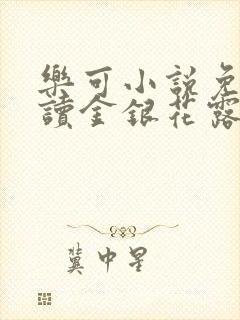 樂可小說免
讀金銀花露
冀中星